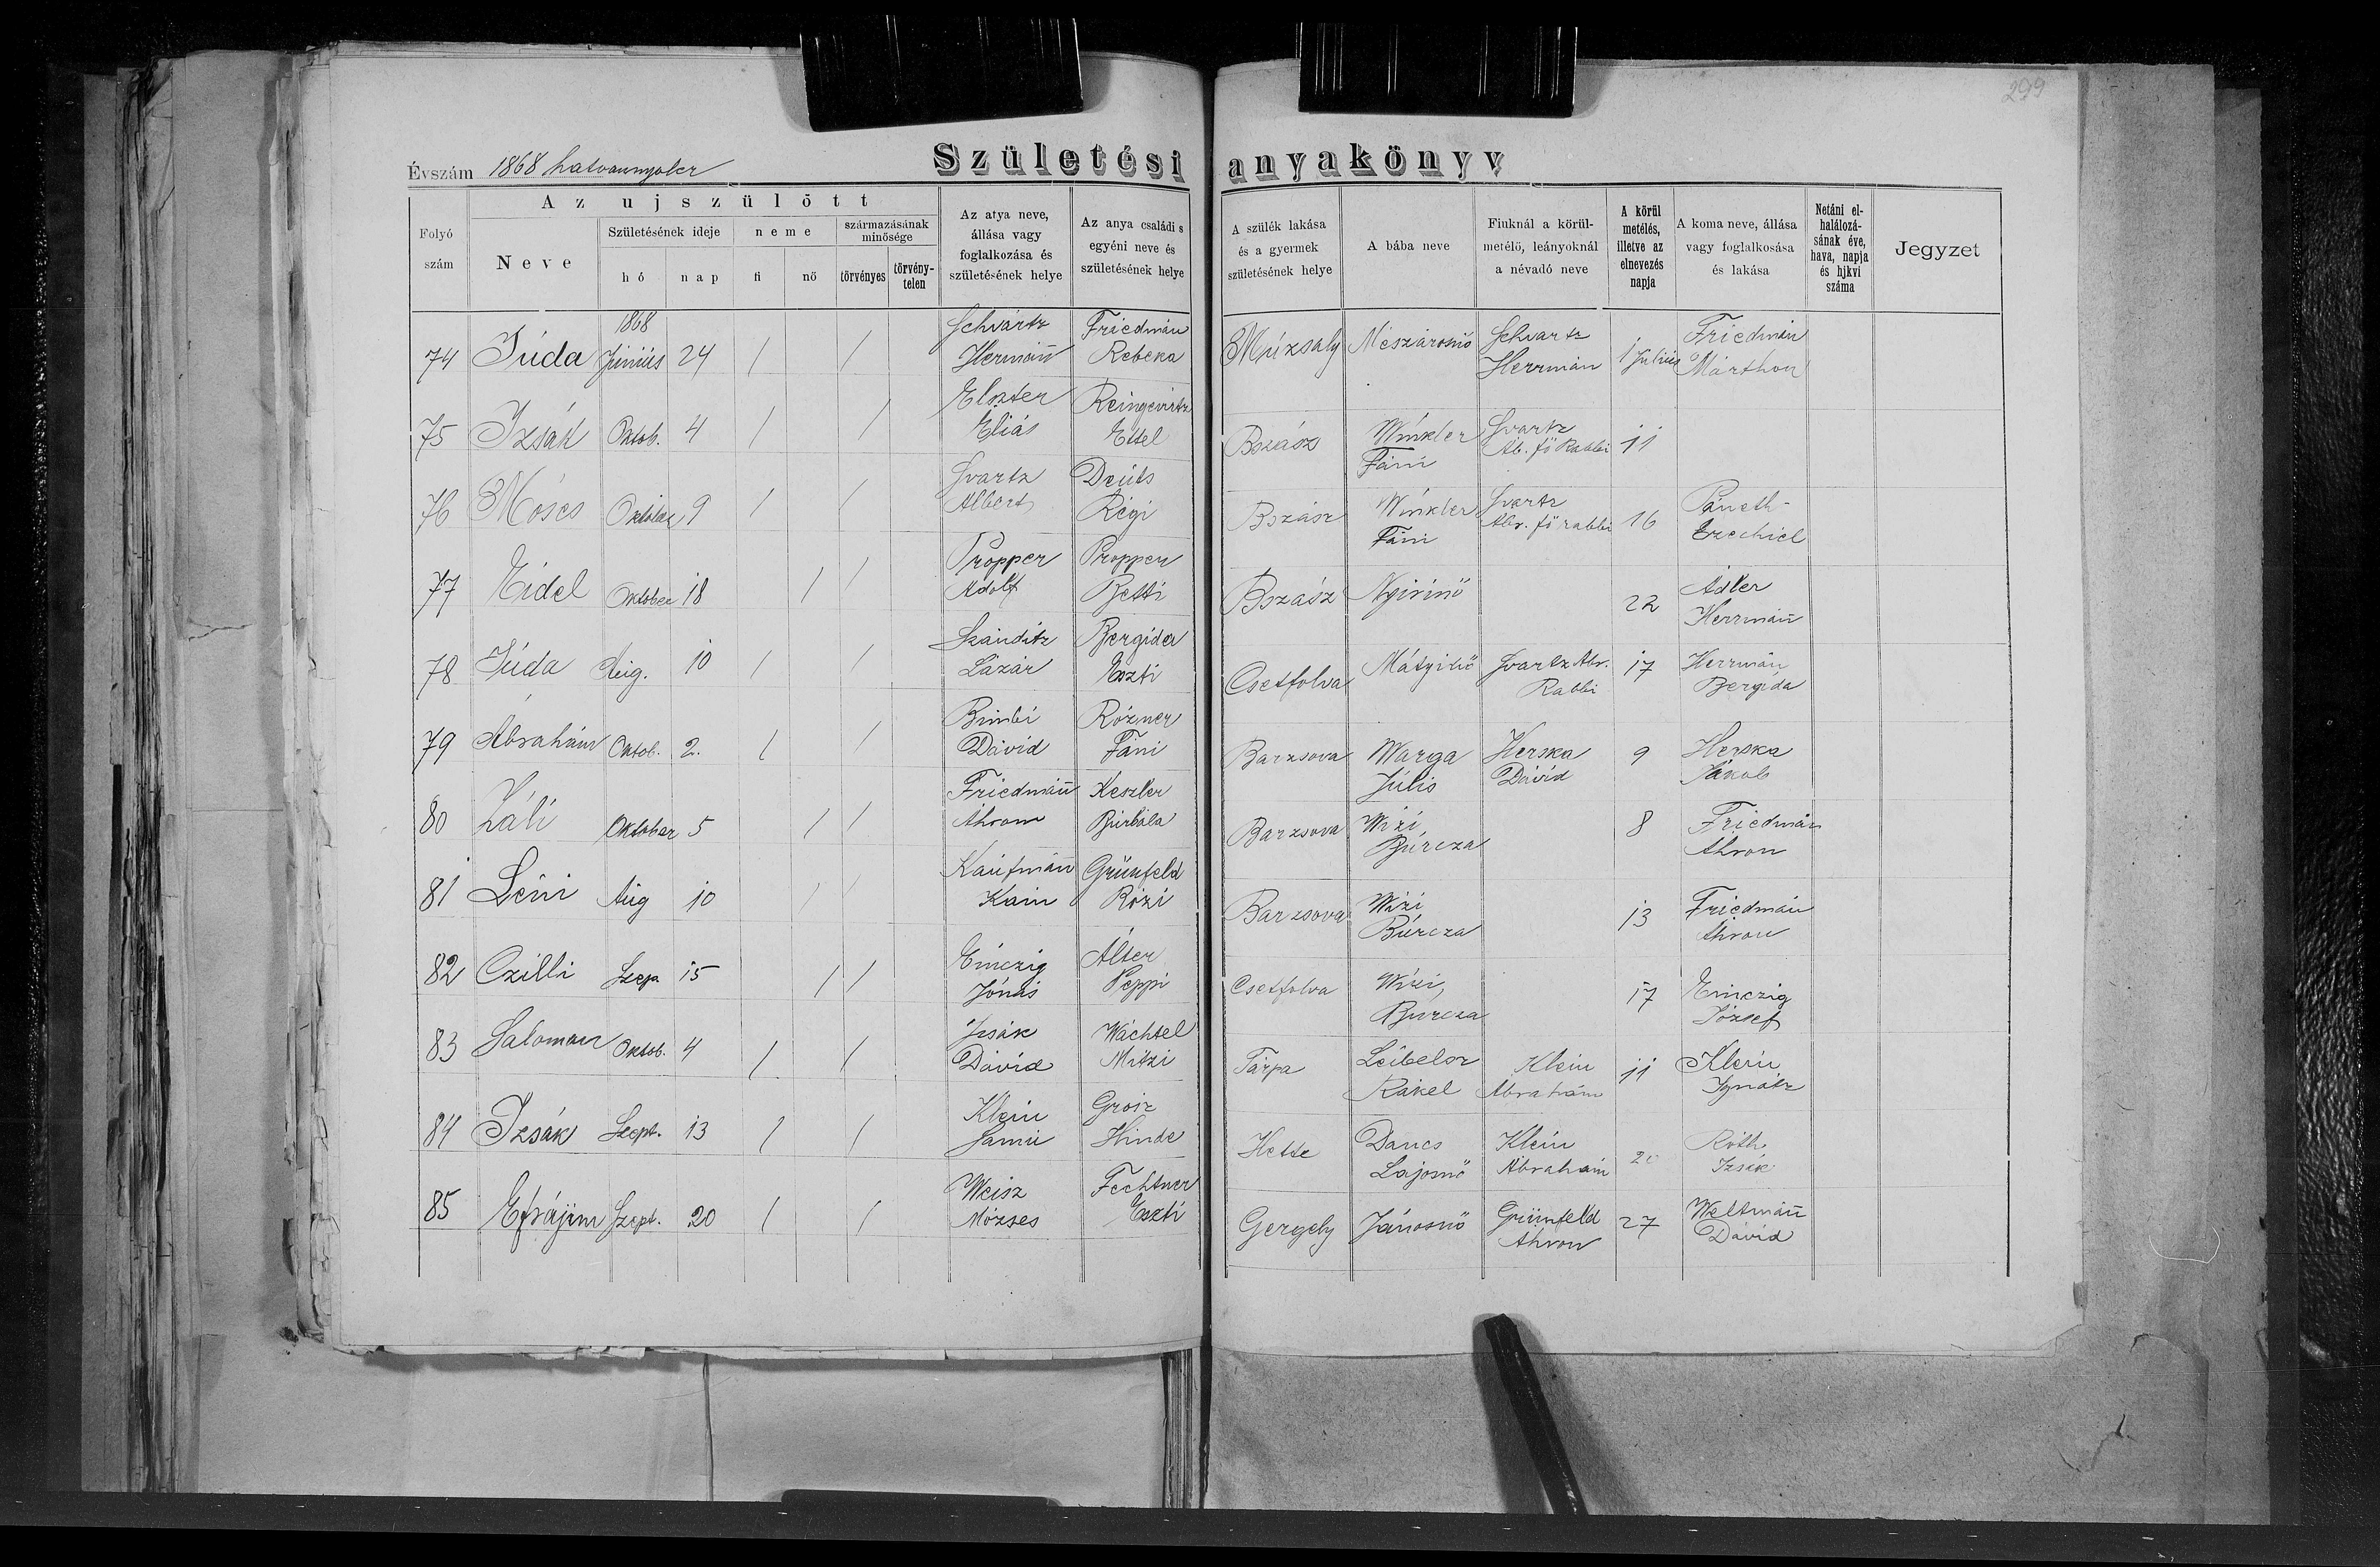 299
Évszám 1868 hatvannyolcz
Születési anyakönyv
Folyó szám
Az ujszülött
Neve
Születésének ideje
hó
nap
neme
fi
nö
származásának minősége
törvényes
törvény-telen
Az atya neve, állása vagy foglalkozása és születésének helye
Az anya családi s egyéni neve és születésének helye
A szülék lakása és a gyermek születésének helye
A bába neve
Fiuknál a körül-metélö, leányoknál a névadó neve
A körül metélés, illetve az elnevezés napja
A koma neve, állása vagy foglalkosása és lakása
Netáni el-halálozá-sának éve, hava, napja és hjkvi száma
Jegyzet
74 Júda 1868 Június 24 / / Schvártz Hermán̄ Friedmán Rebeka Múzsaly Mészárosnö Schvartz Herrmán 1 Július Friedmán Márthon
75 Izsák Oktob. 4 / / Elszter Eliás Reingevirtz Ettel Bszász Winkler Fáni Svartz Ab. fö Rabbi 11
76 Móses Október 9 / / Svartz Albert Deúts Régi Bszász Winkler Fáni Svartz Abr. fö rabbi 16 Páneth Ezechiel
77 Eidel Oktober 18 / / Propper Adolf Propper Betti Bszász Nyirinö 22 Adler Herrmán̄
78 Júda Aúg. 10 / / Szánditz Lázár Bergida Eszti Csetfolva Svartz Abr. Rabbi 17 Herrmán Bergida
79 Abrahám Oktob. 2. / / Dávid Rózner Fáni Barzsova Warga Júlis Herska Dávid 9 Herska Jákob
80 Záli Oktober 5 / / Friedmán̄ Ahron Keszler Búrbála Barzsova Wizi Búrcza 8 Friedmán Ahron
81 Léni Aúg 10 / / Kaúfmán̄ Kain Grünfeld Rózi Barzsova Wizi Búrcza 13 Friedmán Ahron
82 Czilli Szep 15 / / Einczig Jónás Álter Peppi Csetfolva Wizi, Búrcza 17 Einczig József
83 Saloman Oktob. 4 / / Izsák Dávid Wáchtel Mitzi Tárpa Rákel Klein Abrahám 11 Klein Ignátz
84 Izsák Szept. 13 / / Klein Sámú Grosz Hinde Hette Dancs Lajosnö Klein Abrahám 20 Róth Izsák
85 Efrájim Szept. 20 / / Weisz Mózses Fechtner Eszti Gergely Jánosnö Grünfeld Ahron 27 Weltmán̄ Dávid